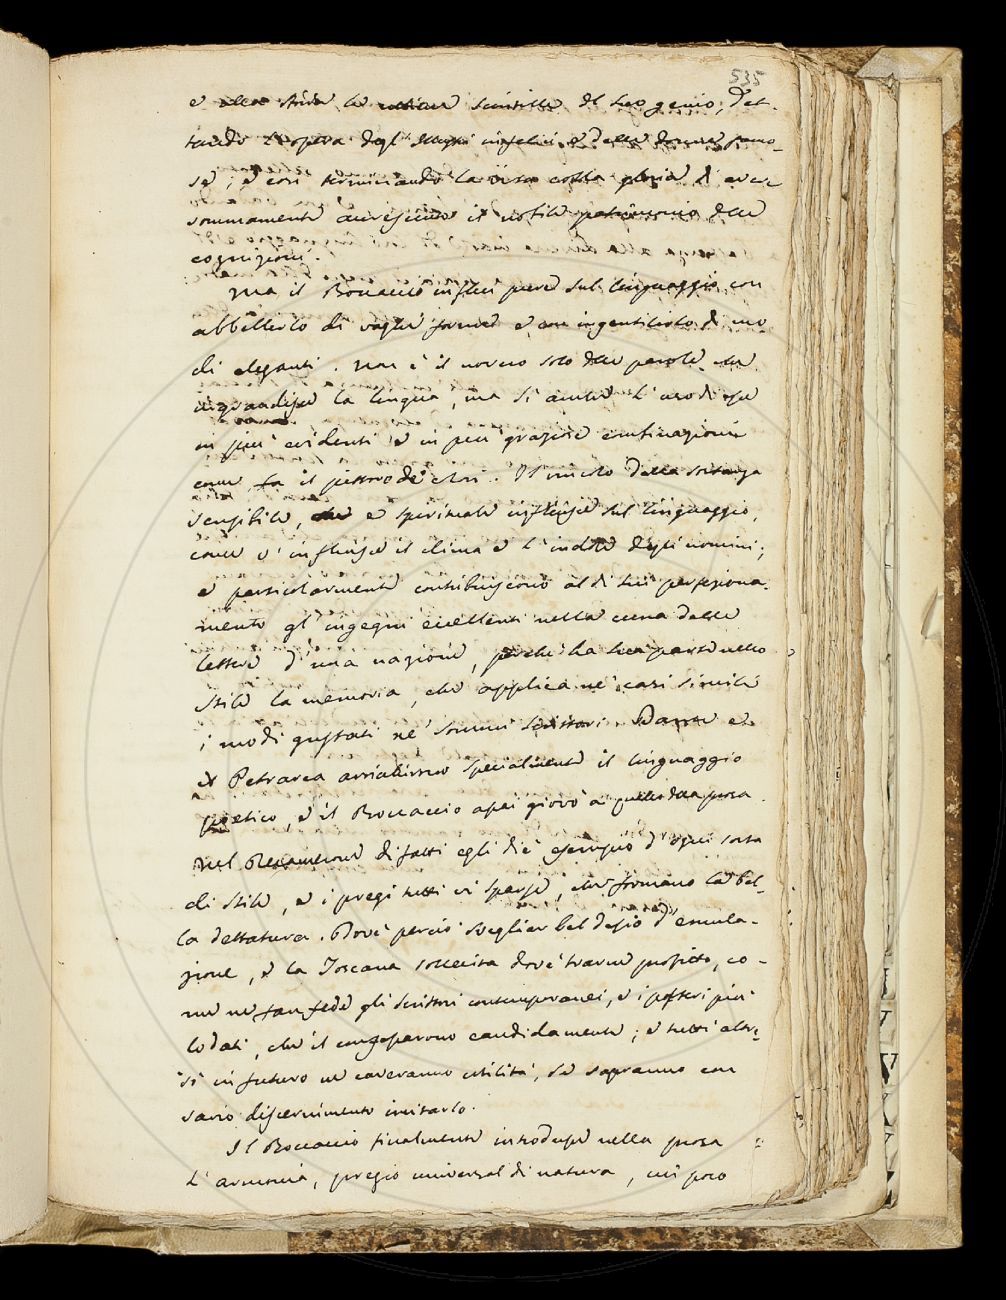 535
e alla strada le scintille del suo genio, det-
tando l'opera degl'illustri infelici e delle donne famo-
se; e così terminando la vita colla gloria d'aver
sommamente accresciuto il nobile patrimonio delle
cognizioni.
Ma il Boccaccio influì pure sul linguaggio, con
abbellirlo di vaghe forme e ingentilirlo di mo
di eleganti. Non è il novero solo delle parole che
ingrandisce la lingua, ma sì anche l'uso di esse
in più evidenti e in più graziose combinazioni
come fa il pittore de' colori. Il vincolo della sostanza
sensibile, e spirituale influisce sul linguaggio,
come v'influisce il clima e l'indole degli uomini;
e particolarmente contribuiscono al di lui perfeziona-
mento gl'ingegni eccellenti nella cuna delle
lettere d'una nazione, perché ha sua parte nello
stile la memoria, che applica ne' casi simili
i modi gustati ne' sommi scrittori. Dante e
il Petrarca arricchirono specialmente il linguaggio
poetico, e il Boccaccio assai giovò a quello della prosa.
Nel Decamerone difatti egli diè esempio d'ogni sorta
di stile, e i pregi tutti vi sparse, che formano la bel-
la dettatura. Dovè perciò svegliar bel desio d'emula-
zione, e la Toscana sollecita dovè trarne profitto, co-
me ne fan fede gli scrittori contemporanei, e i posteri più
lodati, che il confessarono candidamente; e tutti altre
sì in futuro ne caveranno utilità, se sapranno con
savio discernimento imitarlo.
Il Boccaccio finalmente introdusse nella prosa
l'armonia, pregio universal di natura, cui poco